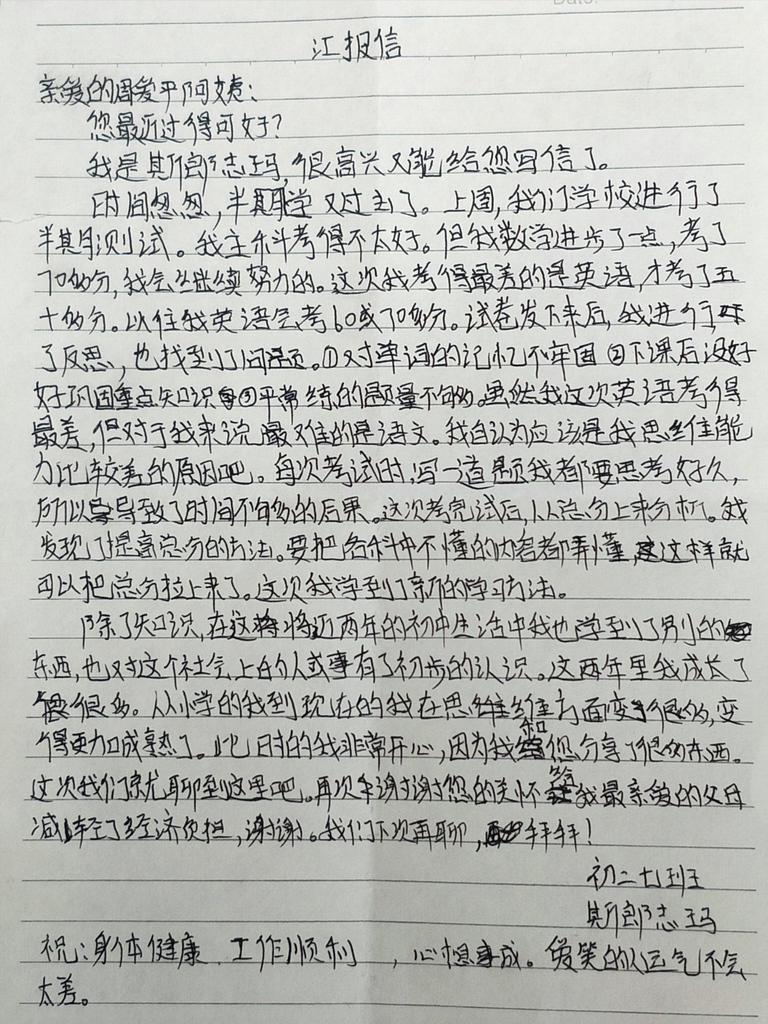 江报信
亲爱的周爱平阿姨:
您最近过得可好?
我是斯郎志玛,很高兴又能给您写信了。
时间忽忽,半期学又过去了。上周,我们学校进行了
半期测试。我主科考得不太好。但我数学进步了一点,考了
70多分,我会继续努力的。这次我考得最差的是英语,才考了五
十多分。以往我英语会考60或70多分。试卷发下来后,我进行
了反思,也找到了问题。①对单词的记忆不牢固②下课后没好
好巩固重点知识③平常练的题量不够多。虽然我这次英语考得
最差,但对于我来说最难的是语文。我自认为应该是我思维能
力比较差的原因吧。每次考试时,写一道题我都要思考好久,
所以导致了时间不够多的后果。这次考完试后,从总分上来分析。我
发现了提高总分的方法。要把各科中不懂的内容都弄懂,这样就
可以把总分拉上来了。这次我学到了新的学习方法。
除了知识,在这将近两年的初中生活中我也学到了别的
东西,也对这个社会上的人或事有了初步的认识。这两年里我成长了
很多。从小学的我到现在的我在思维方面变了很多,变
得更加成熟了。此时的我非常开心,因为我和您分享了很多东西。
这次我们就聊到这里吧。再次谢谢您的关怀给我最亲爱的父母
减轻了经济负担,谢谢。我们下次再聊,拜拜!
初二七班
斯郎志玛
祝:身体健康 工作顺利 ,心想事成。爱笑的人运气不会
太差。